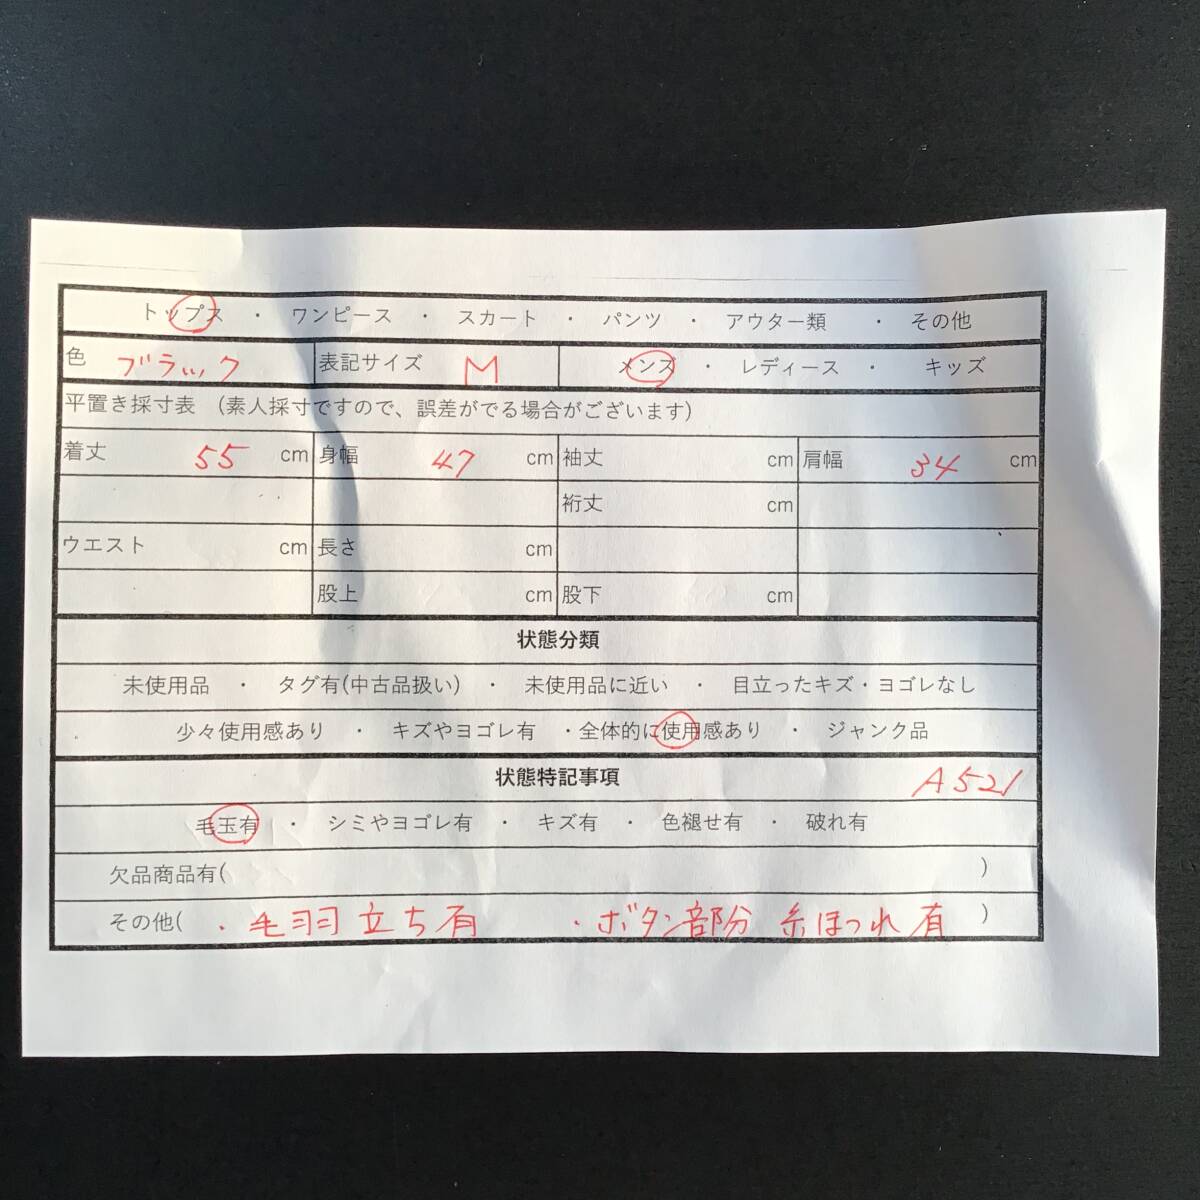 トップス ・ ワンピース ・ スカート ・ パンツ ・ アウター類 ・ その他
色 ブラック 表記サイズ M メンズ ・ レディース ・ キッズ
平置き採寸表 (素人採寸ですので、誤差がでる場合がございます)
着丈 55 cm 身幅 47 cm 袖丈 cm 肩幅 34 cm
裄丈 cm
ウエスト cm 長さ cm
股上 cm 股下 cm
状態分類
未使用品 ・ タグ有(中古品扱い) ・ 未使用品に近い ・ 目立ったキズ・ヨゴレなし
少々使用感あり ・ キズやヨゴレ有 ・全体的に使用感あり ・ ジャンク品
状態特記事項 A521
毛玉有 ・ シミやヨゴレ有 ・ キズ有 ・ 色褪せ有 ・ 破れ有
欠品商品有( )
その他( ・毛羽立ち有 ・ボタン部分 糸ほつれ有 )